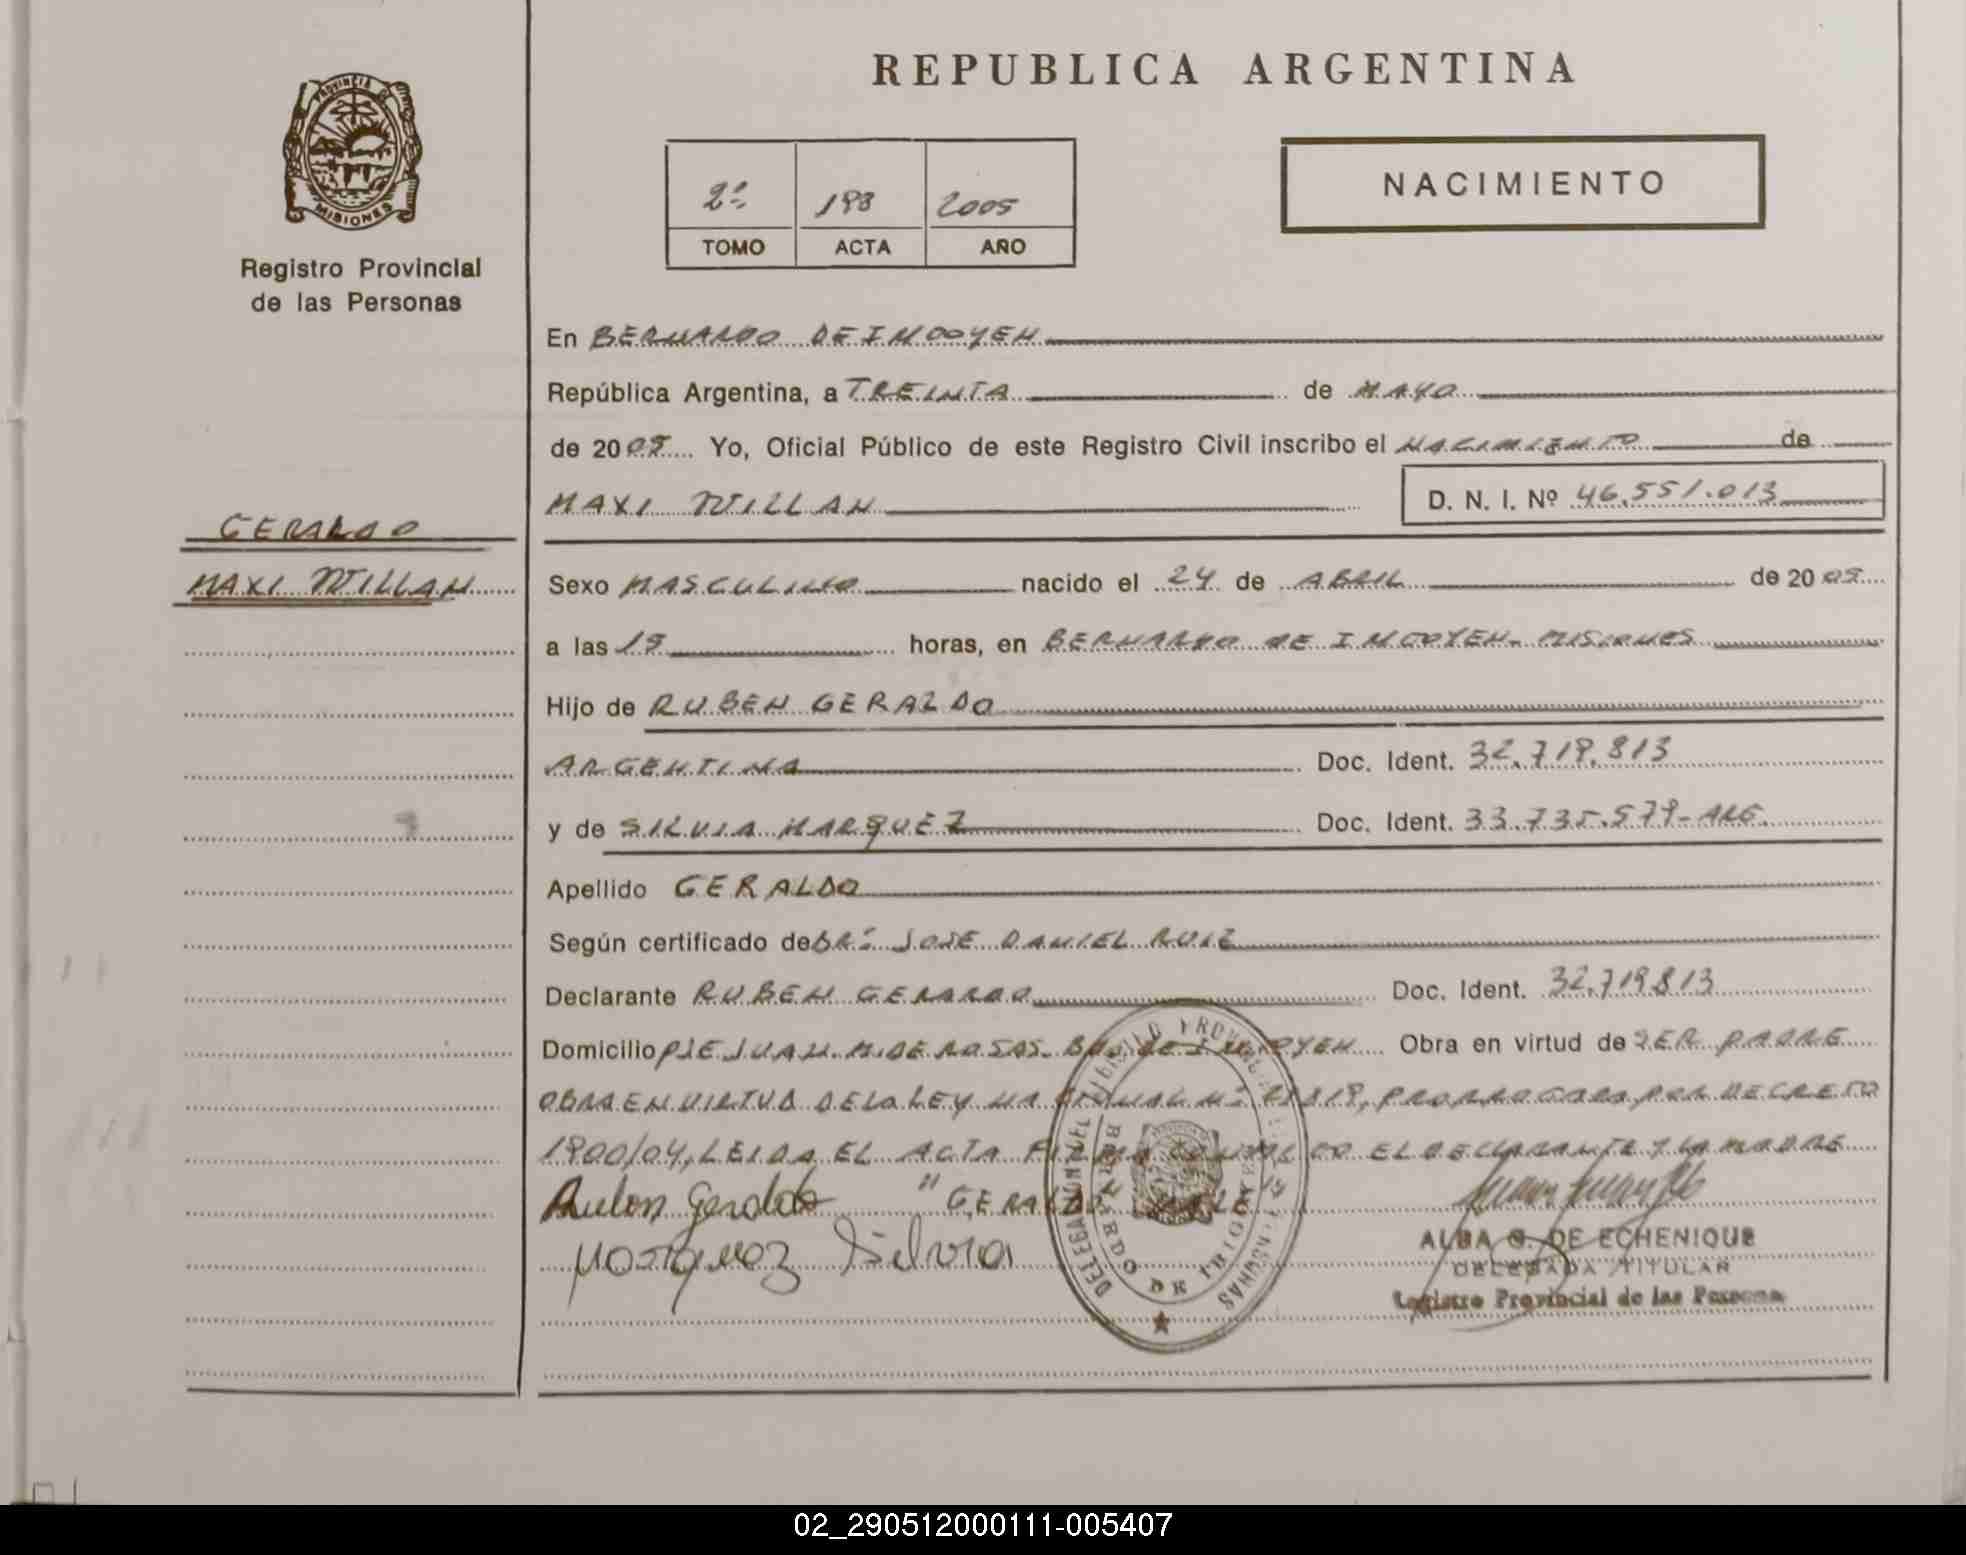 REPUBLICA ARGENTINA
PROVINCIA DE
MISIONES
Registro Provincial
de las Personas
2º 193 2005
TOMO ACTA AÑO
NACIMIENTO
En BERNARDO DE IRIGOYEN
República Argentina, a TREINTA de MAYO
de 2005 Yo, Oficial Público de este Registro Civil inscribo el NACIMIENTO de
MAXI WILLAN D. N. I. Nº 46.551.013
GERALDO
MAXI WILLAN
Sexo MASCULINO nacido el 24 de ABRIL de 2005
a las 15 horas, en BERNARDO DE IRIGOYEN - MISIONES
Hijo de RUBEN GERALDO
ARGENTINA Doc. Ident. 32.719.813
y de SILVIA MARQUEZ Doc. Ident. 33.735.579 - ARG.
Apellido GERALDO
Según certificado de DR. JOSE DANIEL RUIZ
Declarante RUBEN GERALDO Doc. Ident. 32.719.813
Domicilio PJE JUAN M. DE ROSAS. BDO. DE IRIGOYEN Obra en virtud de SER PADRE
OBRA EN VIRTUD DE LA LEY NACIONAL Nº PRORROGADA POR DECRETO
1900/04, LEIDA EL ACTA FIRMA CONMIGO EL DECLARANTE Y LA MADRE
Ruben Geraldo "GERALDO VALE"
Marquez Silvia
ALBA G. DE ECHENIQUE
DELEGADA TITULAR
Registro Provincial de las Personas
BERNARDO DE IRIGOYEN
02_290512000111-005407